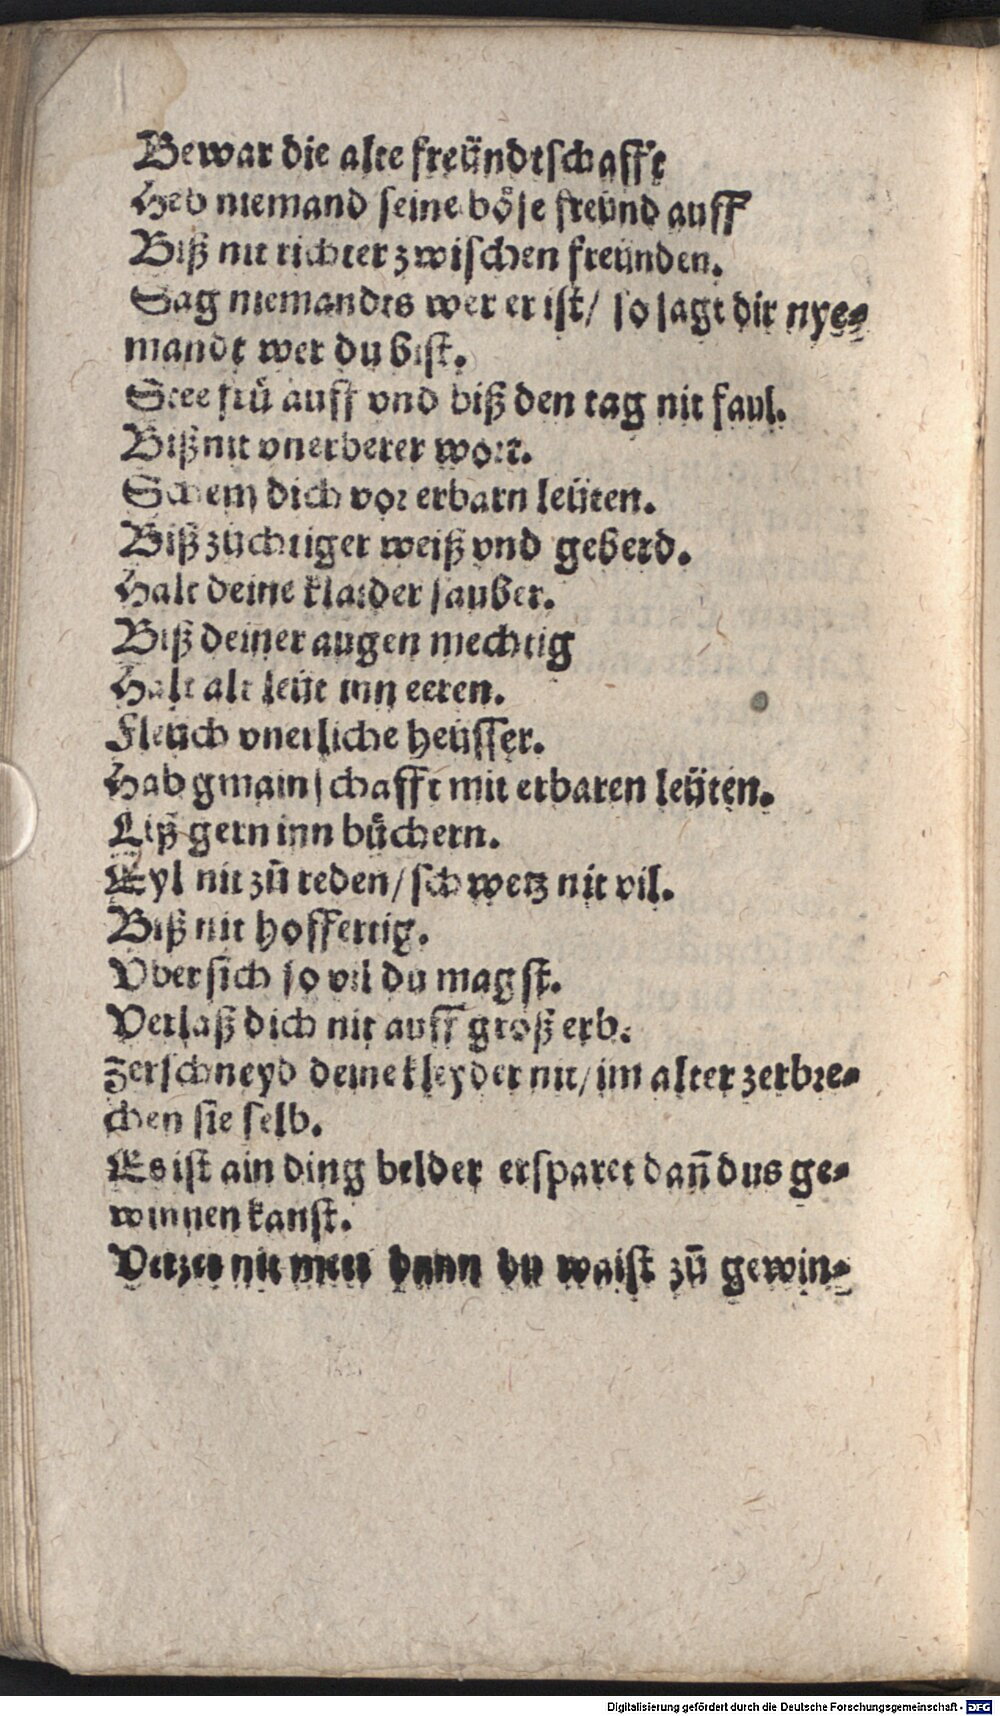 Bewar die alte freündtschafft
Heb niemand seine böse freünd auff
Biß nit richter zwischen freünden.
Sag niemandts wer er ist/ so sagt dir nye⸗
mandt wer du bist.
Stee frü auff vnd biß den tag nit faul.
Biß nit vnerberer wort.
Schem dich vor erbarn leüten.
Biß züchtiger weiß vnd geberd.
Halt deine klaider sauber.
Biß deiner augen mechtig
Halt alt leüt inn eeren.
Fleüch vnerliche heüsser.
Hab gmainschafft mit erbaren leüten.
Liß gern inn bůchern.
Eyl nit zů reden/ schwetz nit vil.
Biß nit hoffertig.
Vbersich so vil du magst.
Verlaß dich nit auff groß erb.
Zerschneyd deine kleyder nit/ im alter zerbre⸗
chen sie selb.
Es ist ain ding belder ersparet dañ dus ge⸗
winnen kanst.
Verzer nit mer dann du waist zů gewin⸗
Digitalisierung gefördert durch die Deutsche Forschungsgemeinschaft - DFG